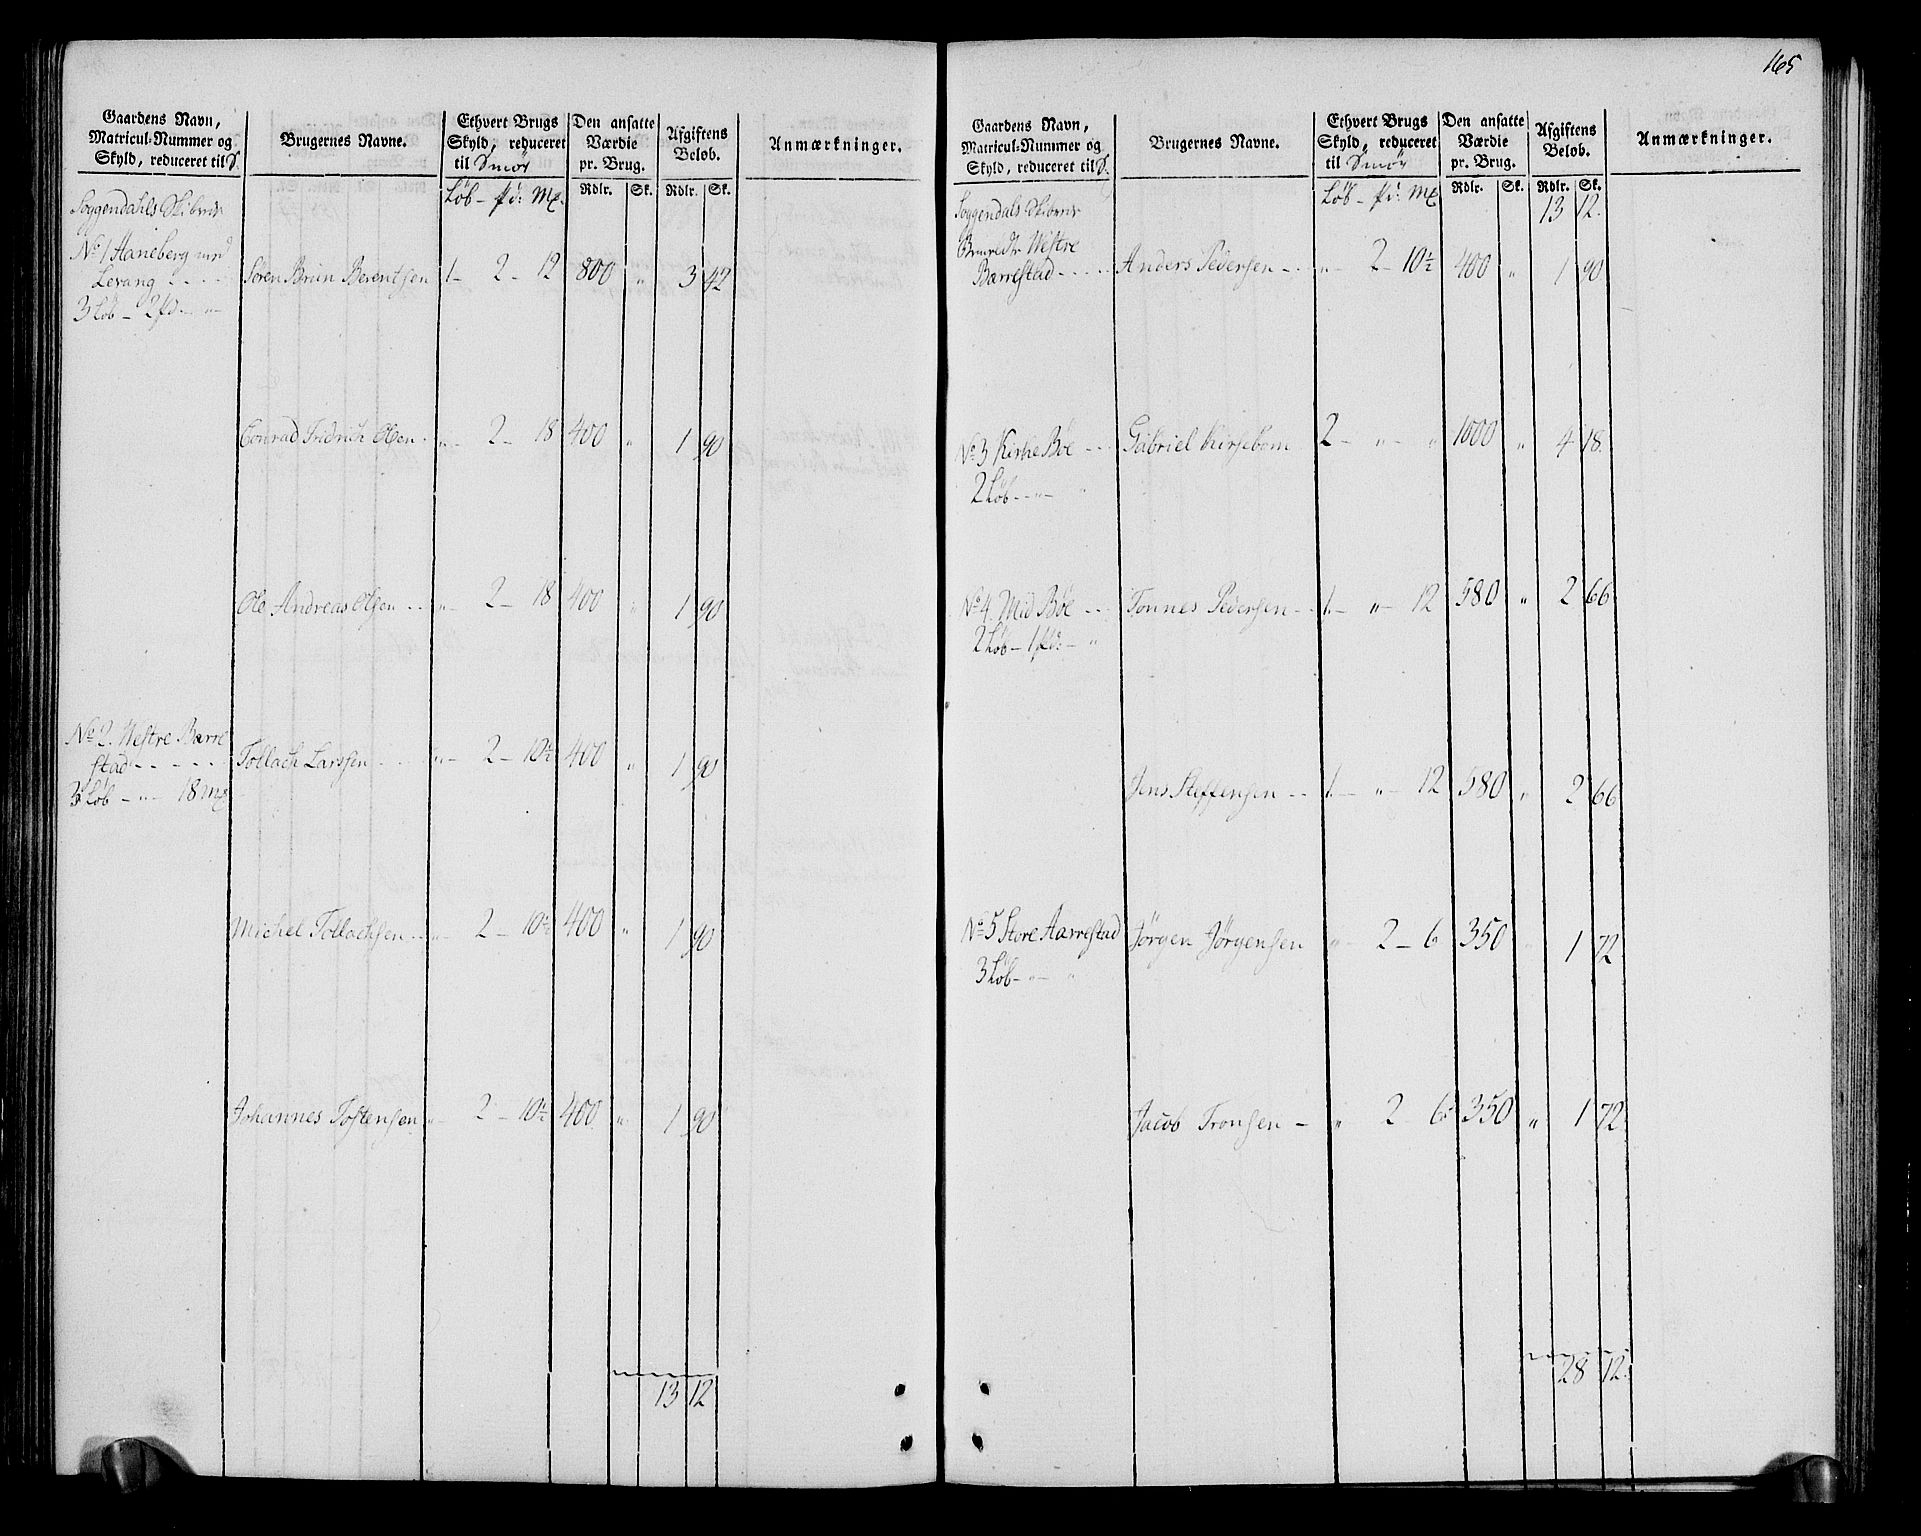 Gaardens Navn, Matricul-Nummer og Skyld, reduceret til S. | Brugernes Navne. | Ethvert Brugs Skyld, reduceret til Smör | Den ansatte Værdie pr. Brug. | Afgiftens Beløb. | Anmærkninger.
Löb - pd: Mk. | Rdlr. | Sk. | Rdlr. | Sk.
Soggendahls Skibrede
No 1 Haneberg med
Levang - - - - Søren Brun Berentsen 1 - 2 - 12 800 " 3 42
3 Löb - 2 pd. - "
Conrad Fridrich Olsen - " - 2 - 18 400 " 1 90
Ole Andreas Olsen - - " - 2 - 18 400 " 1 90
No 2. Westre Barre
stad - - - - - Tollach Larssen - - - " - 2 - 10½ 400 " 1 90
3 Löb - " - 18 mk
Michel Tollachsen - - " - 2 - 10½ 400 " 1 90
Johannes Tostensen " - 2 - 10½ 400 " 1 90
13 12
165
Gaardens Navn, Matricul-Nummer og Skyld, reduceret til S. | Brugernes Navne. | Ethvert Brugs Skyld, reduceret til Smör | Den ansatte Værdie pr. Brug. | Afgiftens Beløb. | Anmærkninger.
Löb - pd: Mk | Rdlr. | Sk. | Rdlr. | Sk.
Soggendals Skibrede 13 12.
Westre
Barrestad - - - - - Anders Pedersen - - " - 2 - 10½ 400 " 1 90
No 3 Kirke Böe - - - Gabriel Kirsebom 2 - " - " 1000 " 4 18.
2 Löb - " - "
No 4. Mid Böe - - - Tonnes Pedersen - - 1 - " - 12 580 " 2 66
2 Löb - 1 pd: - "
Jens Steffensen - - 1 - " - 12 580 " 2 66
No 5 Store Aarrestad Jörgen Jörgensen " - 2 - 6 350 " 1 72
3 Löb - " - "
Jacob Tronsen - " 2 - 6 350 " 1 72
28 12.